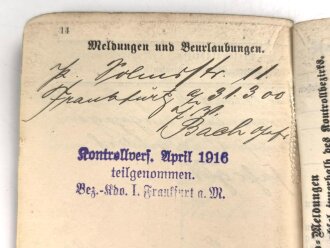 14
Meldungen und Beurlaubungen.
Solmsstr. 11
Frankfurt a 31.3.00
Bach
Kontrollvers. April 1916
teilgenommen.
Bez.-Kdo. I. Frankfurt a. M.
Meldungen
innerhalb des Kontrollbezirks.